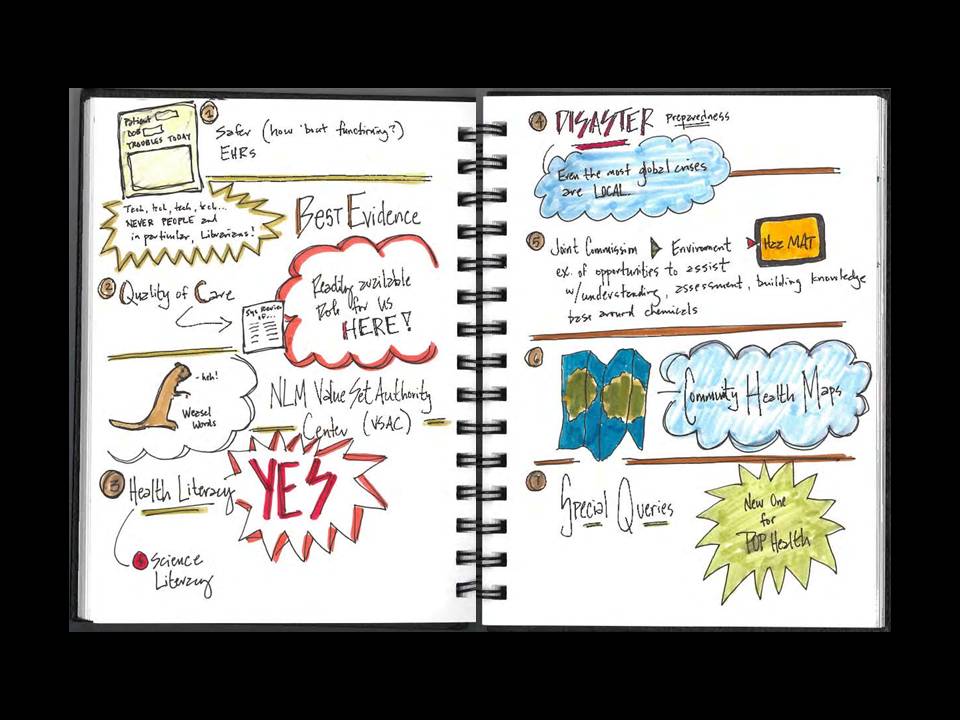 1
Patient
DOB
TROUBLES TODAY
Safer (how 'bout functioning?)
EHRs
Tech, tech, tech, tech...
NEVER PEOPLE and
in particular, Librarians!
BEST EVIDENCE
2 Quality of Care
Sys Review
of...
Readily available
Role for us
HERE!
- heh!
Weasel
Words
NLM Value Set Authority
Center (VSAC)
3 Health Literacy
YES
Science
Literacy
4 DISASTER Preparedness
Even the most global crises
are LOCAL.
5 Joint Commission Environment Haz MAT
ex. of opportunities to assist
w/understanding, assessment, building knowledge
base around chemicals
6
Community Health Maps
7
Special Queries
New One
for
POP Health